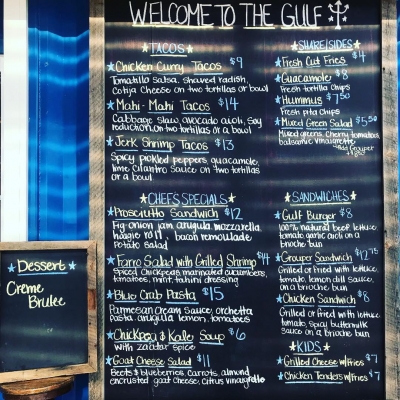 WELCOME TO THE GULF
TACOS
Chicken Curry Tacos $9
Tomatillo Salsa, shaved radish,
Cotija Cheese on two tortillas or bowl
Mahi-Mahi Tacos $14
Cabbage Slaw, avocado aioli, soy
reduction on two tortillas or a bowl
Jerk Shrimp Tacos $13
Spicy pickled peppers guacamole,
lime cilantro Sauce on two tortillas
or a bowl
CHEF'S SPECIALS
Prosciutto Sandwich $12
Fig-onion jam arugula mozzarella
hoagie roll, bacon remoulade
Potato salad
Farro Salad with Grilled Shrimp $14
Spiced Chickpeas marinated cucumbers,
tomatoes, mint, tahini dressing
Blue Crab Pasta $15
Parmesan Cream Sauce, orchetta
pasta arugula lemon, tomatoes
Chickpea & Kale Soup $6
with zaatar spice
Goat Cheese Salad $11
Beets & blueberries, carrots, almond
encrusted goat cheese, citrus
SHARE/SIDES
Fresh Cut Fries $4
Guacamole $8
Fresh tortilla chips
Hummus $7.50
Fresh pita Chips
Mixed Green Salad $5.50
Mixed greens, Cherry tomatoes,
balsamic vinaigrette
SANDWICHES
Gulf Burger $8
100% natural beef lettuce
tomato garlic aioli on a
brioche bun
Grouper Sandwich $12.75
Grilled or Fried with lettuce
tomato, lemon dill sauce,
on a brioche bun
Chicken Sandwich $8
Grilled or Fried with lettuce
tomato spicy buttermilk
sauce on a brioche bun
KIDS
Grilled Cheese w/Fries $7
Chicken Tenders w/Fries $7
Dessert
Creme
Brulee